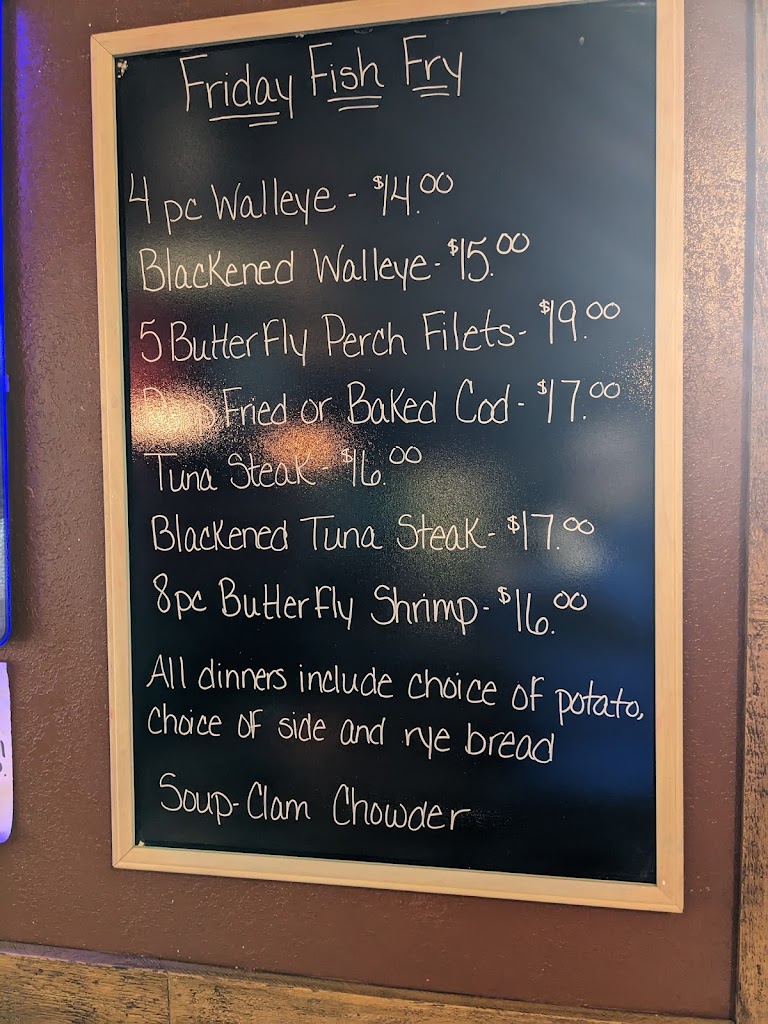 Friday Fish Fry
4 pc Walleye - $14.00
Blackened Walleye - $15.00
5 Butterfly Perch Filets - $19.00
Deep Fried or Baked Cod - $17.00
Tuna Steak - $16.00
Blackened Tuna Steak - $17.00
8pc Butterfly Shrimp - $16.00
All dinners include choice of potato,
choice of side and rye bread
Soup - Clam Chowder